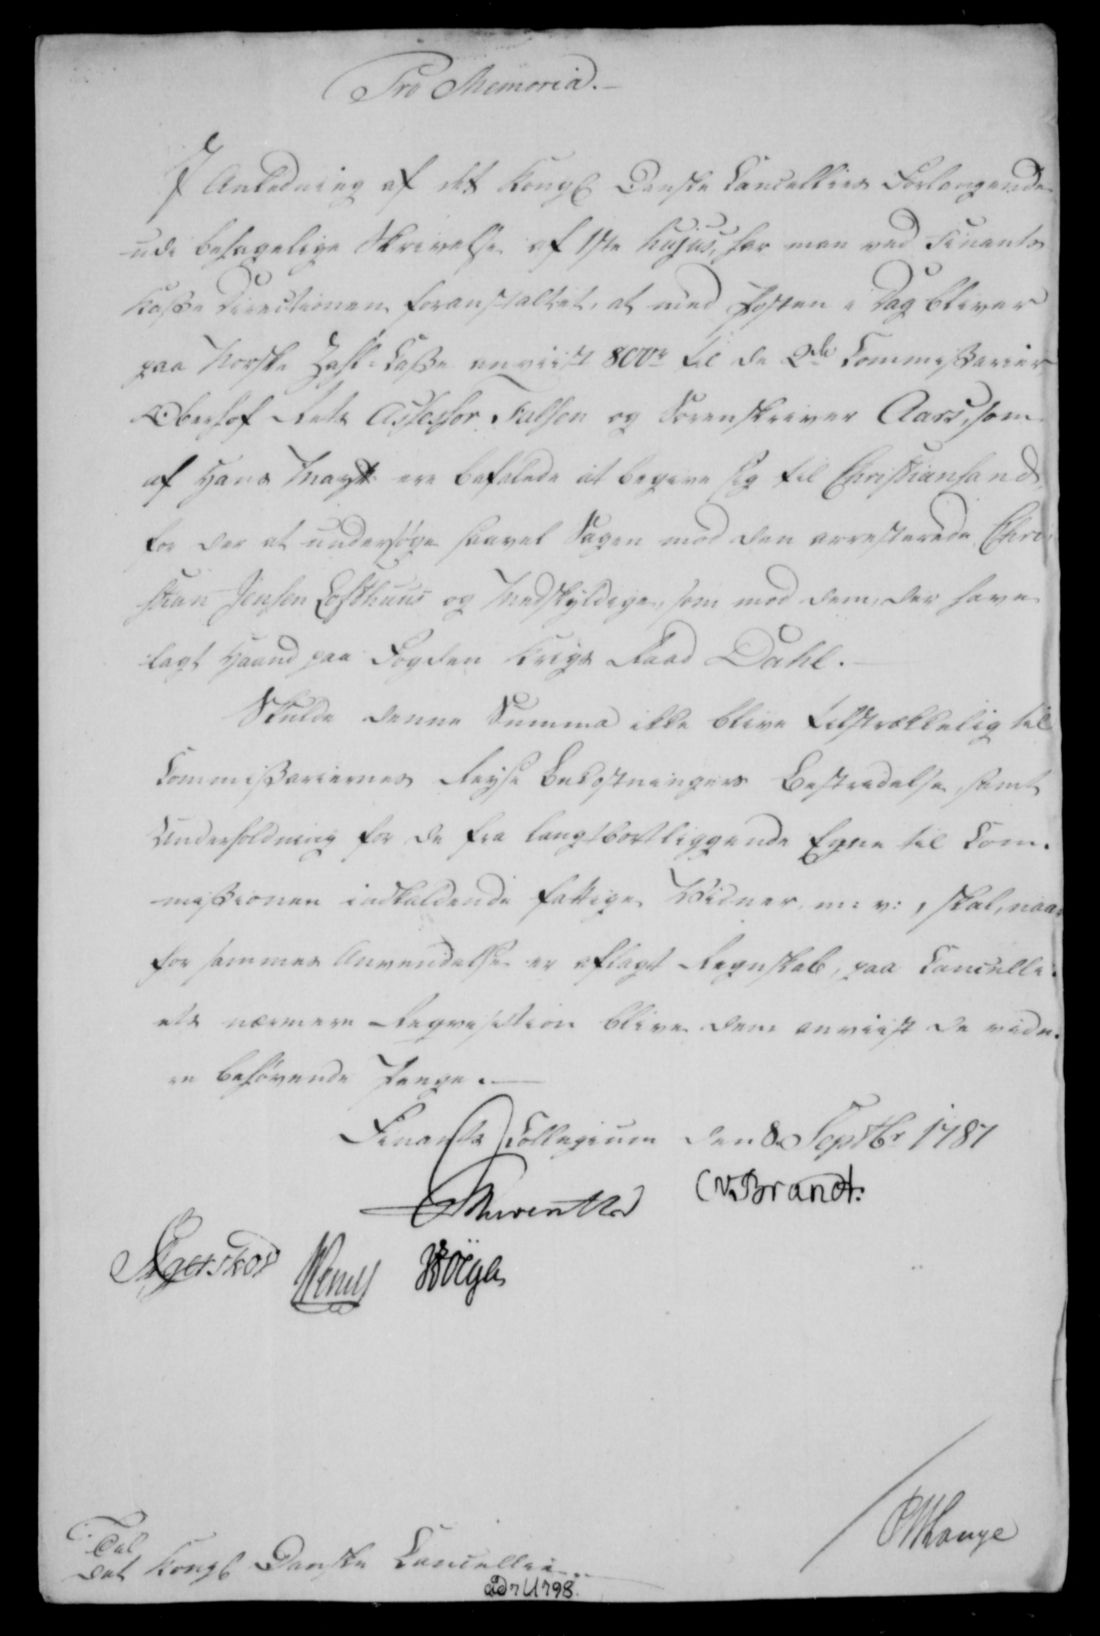 Pro Memoria.
I Anledning af det Kongl Danske Cancellies Forlangende
udi behagelige Skrivelse af 1ste hujus, har man ved Finants
Kasse Directionen foranstaltet, at med Posten i Dag bliver
paa Norske Zahl-Casse anviist 800 til de 2de Commissarier
Oberhof Rets Assessor Falsen og Sorenskriver Aars, som
af Hans Mayt ere befalede at begive sig til Christiansand
for der at undersøge saavel Sagen mod den arresterede Chri
stian Jensen Lofthuus og Medskyldige, som mod dem, der have
lagt Haand paa Fogden Krigs Raad Dahl.
Skulde denne Summa ikke blive tilstrækkelig til
Commissariernes Reyse Bekostningers Bestridelse samt
Underholdning for de fra langtbortliggende Egne til Com-
missionen indkaldende fattige Vidner m: v:, skal, naar
for sammes Anvendelse er aflagt Regnskab, paa Cancelli-
ets nærmere Reqvisition blive dem anviist de vide-
re behøvende Penge.
Finants Collegium den 8 Septbr 1787
CvBrandt.
Ageskov
Til
Det Kongl Danske Cancellie.